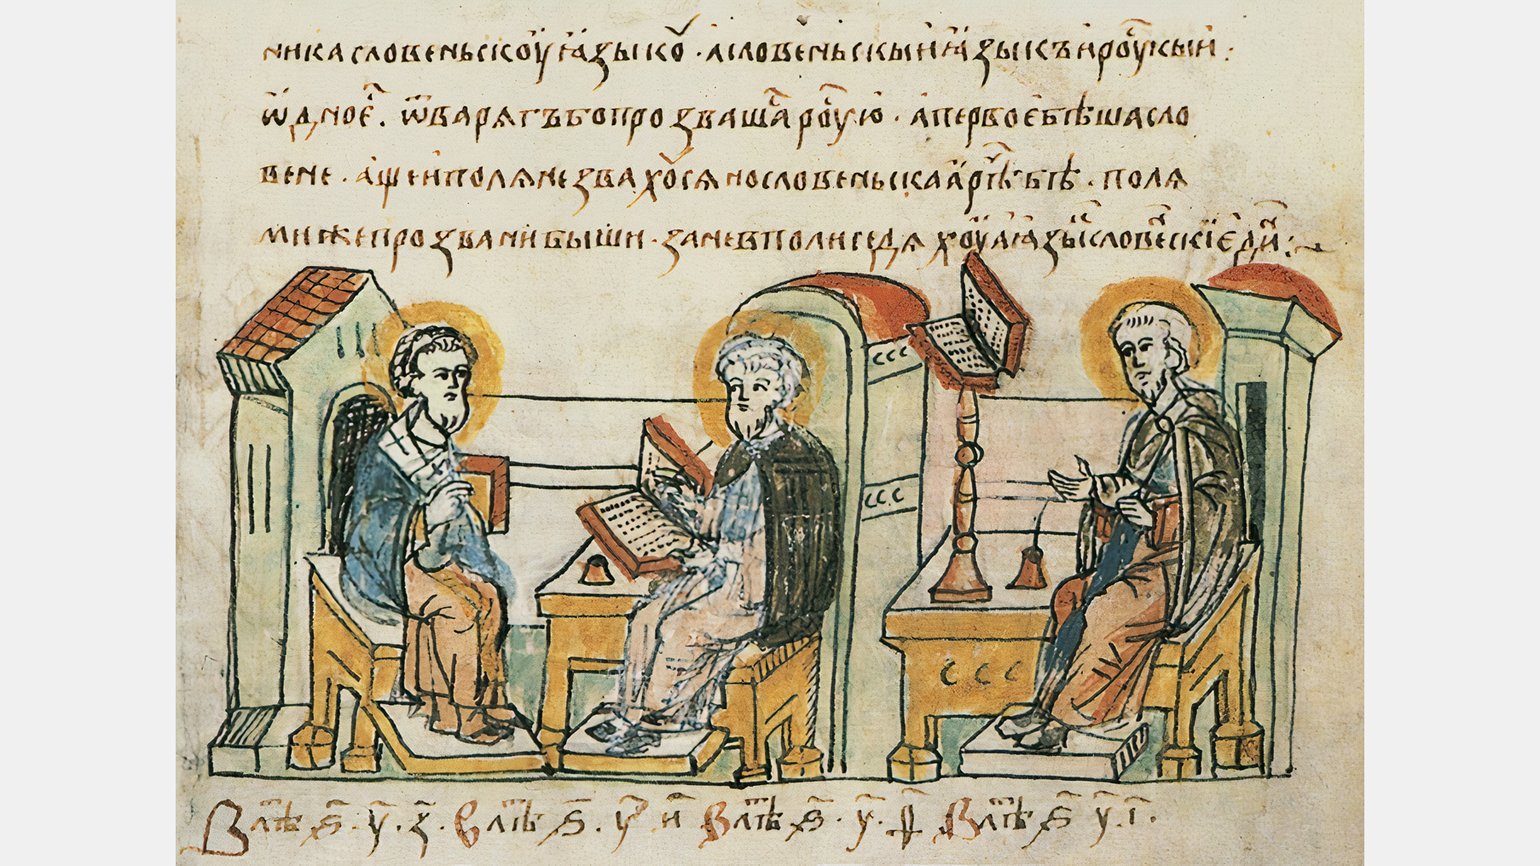 никасловеньскоѷꙗзыкоⷹ · асловеньскыиꙗзыкъироускыи :
ѿдноеⷭ҇ . ѿварягъбопрозвашаⷭ҇роусю · апервоебѣшасло
вене · ащеиполянезвахоⷹсяносло­веньскааⷬ҇рѣⷱ҇бѣ · поля
мижепрозванибыши · заневполиседяхоуаꙗзыⷦ҇словеⷩ҇скїедиⷩ҇ :~
Влѣⷮ ѕ҃ . у҃ . з҃ . Влѣⷮ ѕ҃ . у҃ и҃ Влѣⷮ ѕ҃ . у҃ . ѳ҃ Влѣⷮ ѕ҃ у҃ . і҃ .